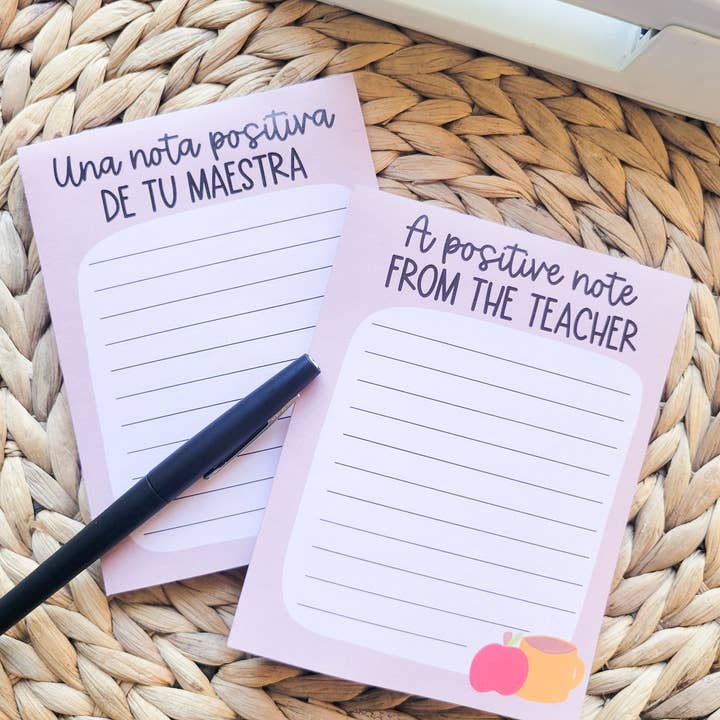 Una nota positiva
DE TU MAESTRA
A positive note
FROM THE TEACHER